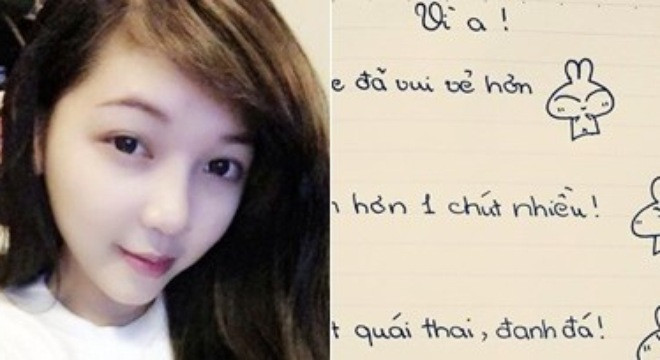 Vì a!
e đã vui vẻ hơn
hơn 1 chút nhiều!
quái thai, đanh đá!